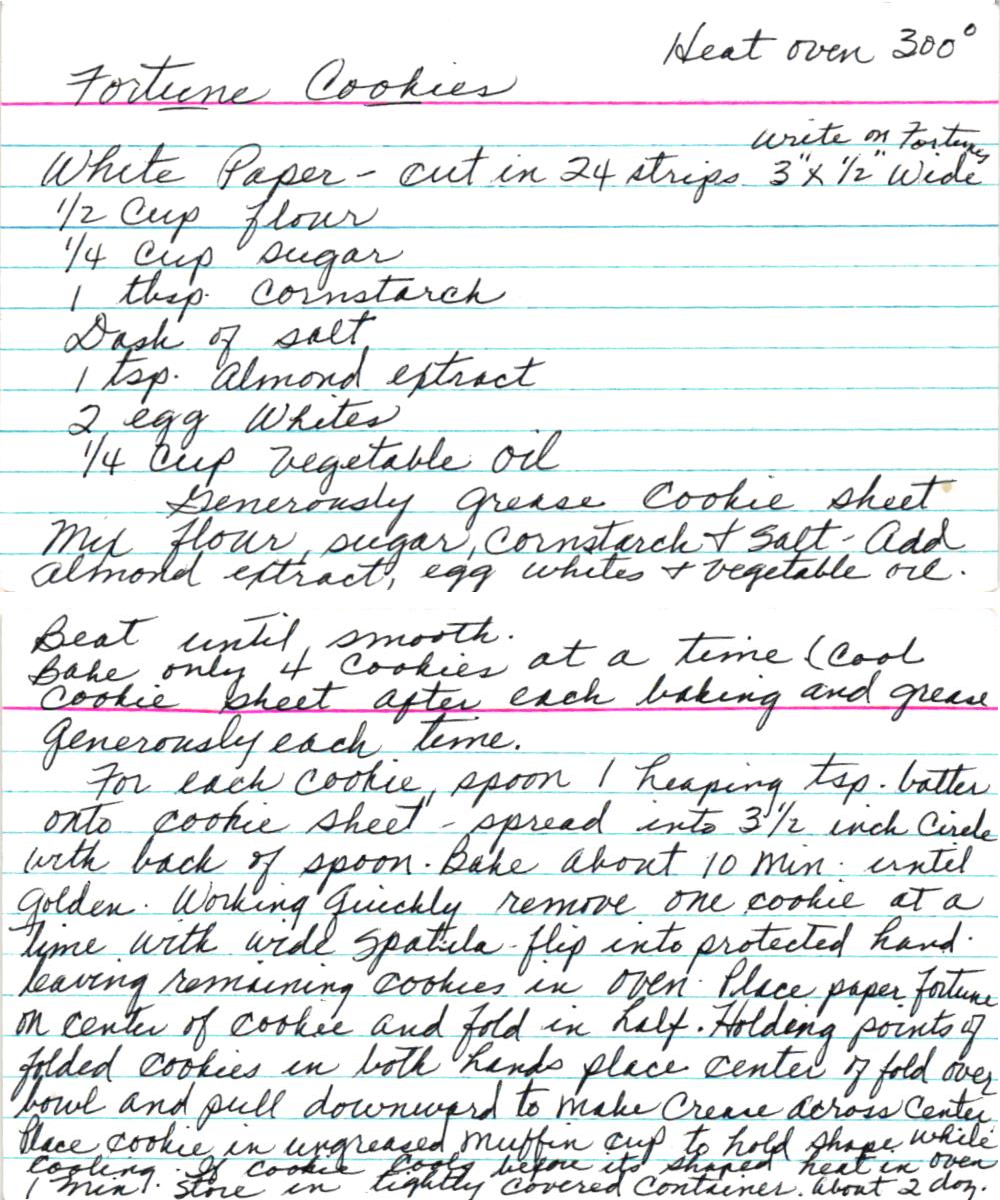 Heat oven 300°
Fortune Cookies
Write on Fortunes
White Paper - cut in 24 strips 3" x 1/2" Wide
1/2 Cup flour
1/4 Cup sugar
1 tbsp. Cornstarch
Dash of salt
1 tsp. Almond extract
2 egg Whites
1/4 Cup Vegetable Oil
Generously grease Cookie sheet
Mix flour, sugar, Cornstarch & Salt - Add
almond extract, egg whites & vegetable oil.
Beat until smooth.
Bake only 4 Cookies at a time (Cool
Cookie sheet after each baking and grease
generously each time.
For each Cookie, spoon 1 heaping tsp. batter
onto cookie sheet - spread into 3 1/2 inch Circle
with back of spoon. Bake About 10 Min. until
golden. Working Quickly remove one cookie at a
time with wide spatula - flip into protected hand.
leaving remaining cookies in oven. Place paper fortune
on center of cookie and fold in half. Holding points of
folded cookies in both hands place center of fold over
bowl and pull downward to make Crease Across Center.
Place cookie in ungreased muffin cup to hold shape while
cooling. If cookie cools before its shaped heat in oven
1 min. Store in tightly covered container. About 2 doz.